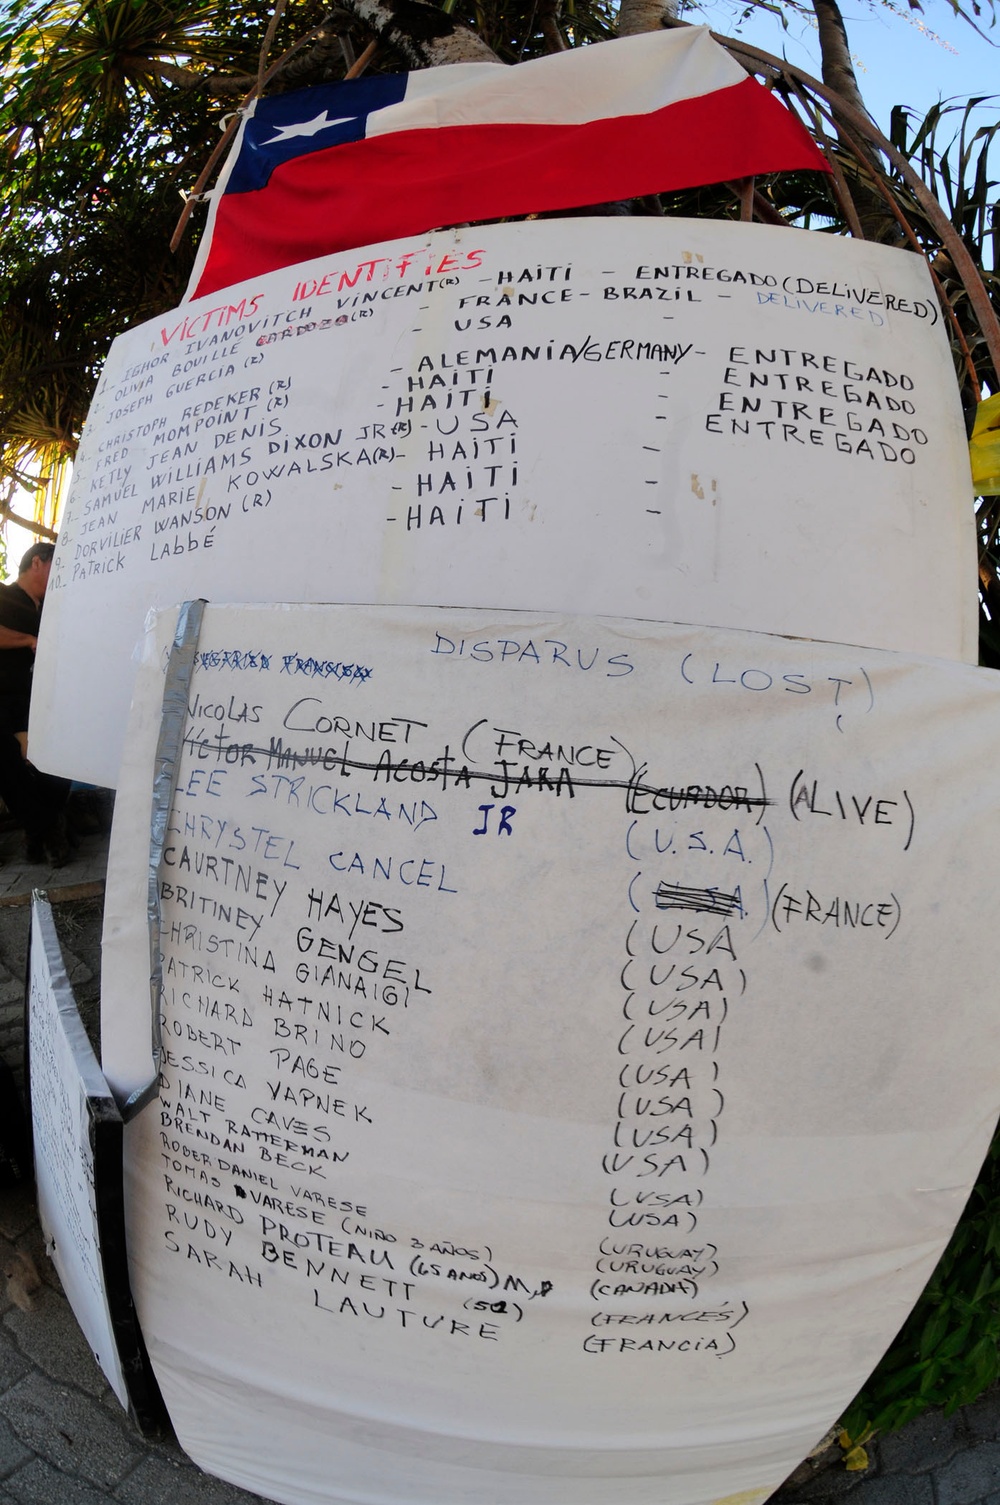 VICTIMS IDENTIFIES
1. IGHOR IVANOVITCH VINCENT(R) - HAITI - ENTREGADO (DELIVERED)
2. OLIVIA BOUILLÉ CARDOZO (R) - FRANCE-BRAZIL - DELIVERED
3. JOSEPH GUERCIA (R) - USA
4. CHRISTOPH REDEKER (R) - ALEMANIA/GERMANY - ENTREGADO
5. FRED MOMPOINT (R) - HAITI - ENTREGADO
6. KETLY JEAN DENIS - HAITI - ENTREGADO
7. SAMUEL WILLIAMS DIXON JR (R) - USA - ENTREGADO
8. JEAN MARIE KOWALSKA(R) - HAITI -
9. DORVILIER WANSON (R) - HAITI -
10. PATRICK LABBÉ - HAITI -
DISPARUS (LOST)
NICOLAS CORNET (FRANCE)
VICTOR MANUEL ACOSTA JARA (ECUADOR) (ALIVE)
LEE STRICKLAND JR (U.S.A.)
CHRYSTEL CANCEL (FRANCE)
CAURTNEY HAYES (USA
BRITINEY GENGEL (USA)
CHRISTINA GIANAIGI (USA)
PATRICK HATNICK (USA)
RICHARD BRINO (USA)
ROBERT PAGE (USA)
JESSICA VAPNEK (USA)
DIANE CAVES (USA)
WALT RATTERMAN (USA)
BRENDAN BECK (USA)
ROBER DANIEL VARESE (URUGUAY)
TOMAS VARESE (NIÑO 3 AÑOS) (URUGUAY)
RICHARD PROTEAU (65 ANOS) M, (CANADA)
RUDY BENNETT (50) (FRANCÉS)
SARAH LAUTURE (FRANCIA)